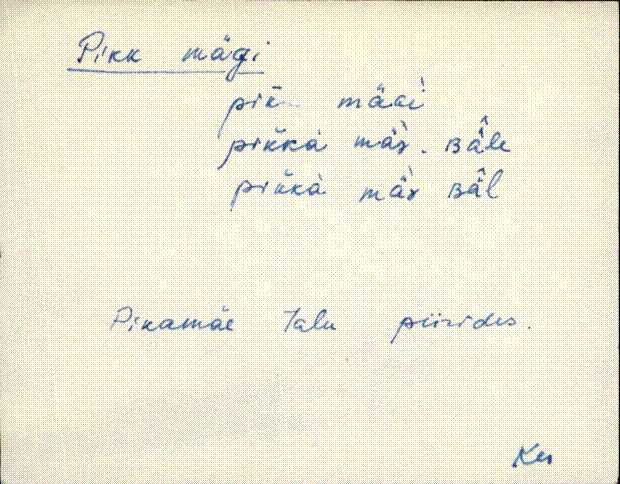 Pikk mägi
pik̆ mäɢì
pik̆kà mäɜ̀. ʙä̂le
pik̆kà mäɜ̀ ʙä̂l
Pikamäe talu piirides.
Kes